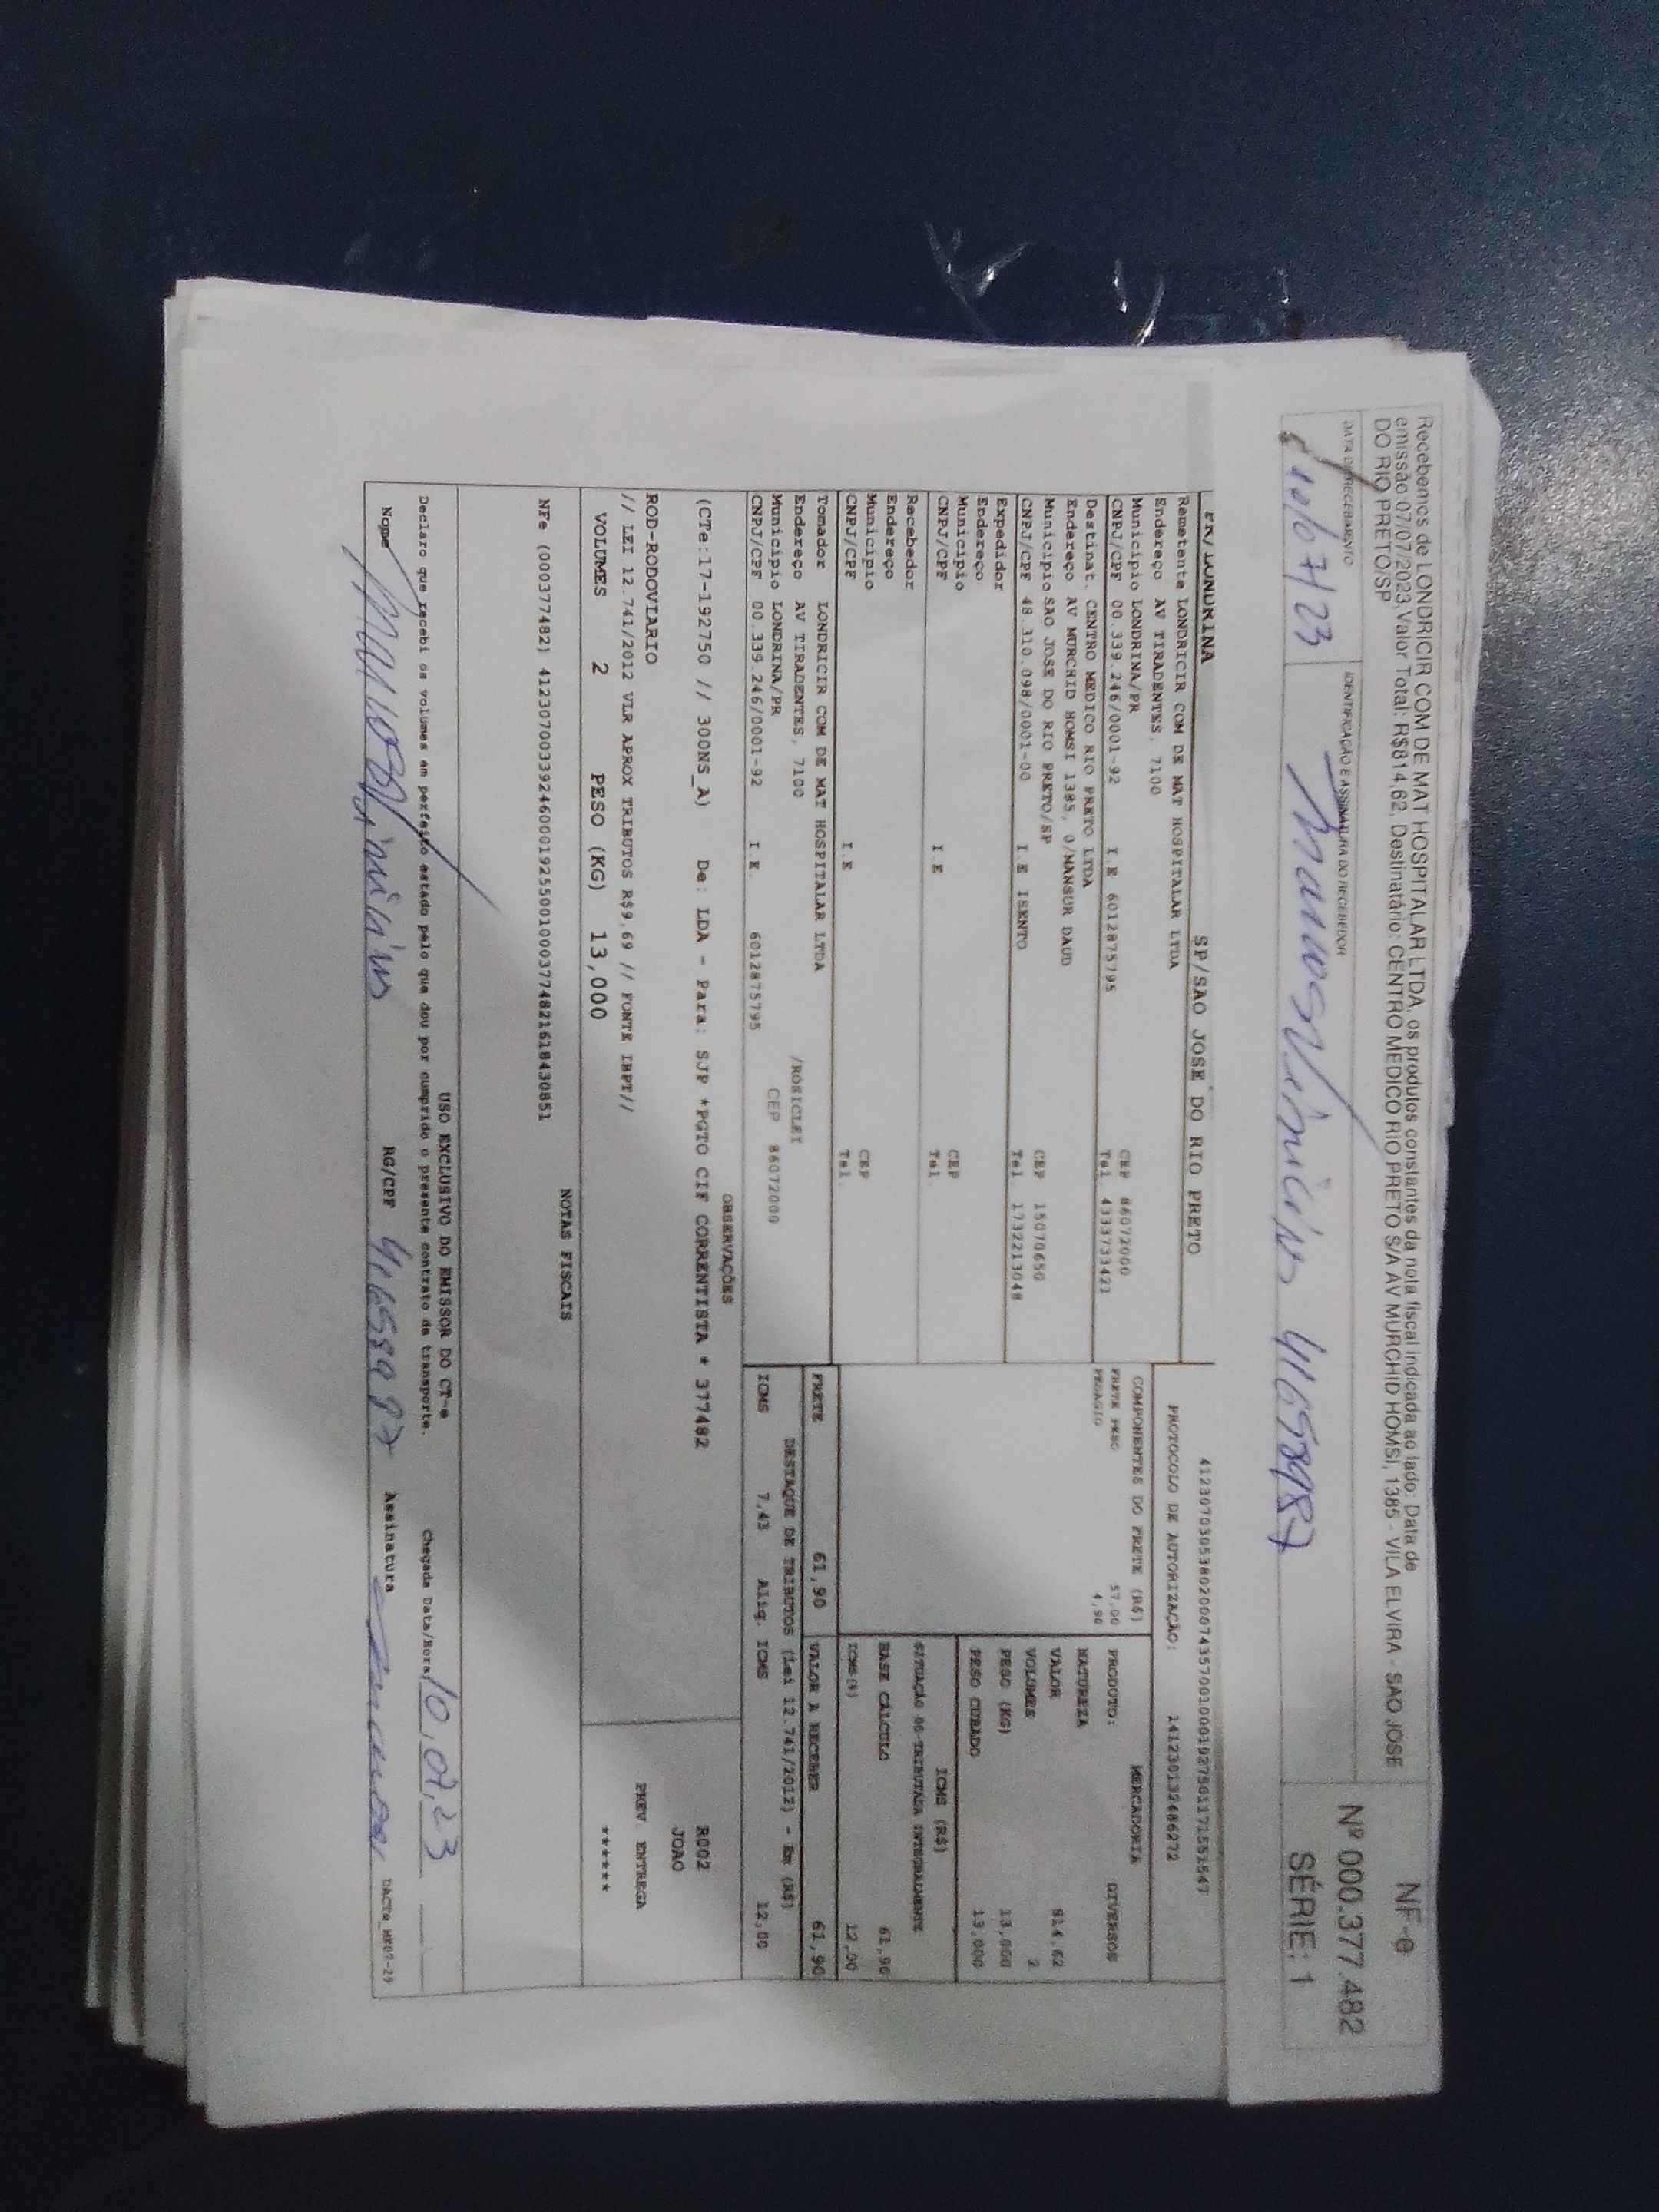 Recebemos de LONDRICIR COM DE MAT HOSPITALAR LTDA, os produtos constantes da nota fiscal indicada ao lado. Data de
emissão 07/07/2023, Valor Total: R$814,62, Destinatário: CENTRO MEDICO RIO PRETO S/A AV MURCHID HOMSI, 1385 - VILA ELVIRA - SAO JOSE
DO RIO PRETO/SP
NF-e
Nº 000.377.482
SÉRIE: 1
DATA DE RECEBIMENTO
IDENTIFICAÇÃO E ASSINATURA DO RECEBEDOR
10/07/23
PR/LONDRINA
SP/SAO JOSE DO RIO PRETO
Remetente LONDRICIR COM DE MAT HOSPITALAR LTDA
Endereço AV TIRADENTES, 7100
Município LONDRINA/PR CEP 86072000
CNPJ/CPF 00.339.246/0001-92 I.E 6012875795 Tel 4333733421
Destinat. CENTRO MEDICO RIO PRETO LTDA
Endereço AV MURCHID HOMSI 1385, 0/MANSUR DAUD
Município SAO JOSE DO RIO PRETO/SP CEP 15070650
CNPJ/CPF 48.310.098/0001-00 I.E ISENTO Tel. 1732213048
Expedidor
Endereço
Município CEP
CNPJ/CPF I.E Tel.
Recebedor
Endereço
Município CEP
CNPJ/CPF I.E Tel.
Tomador LONDRICIR COM DE MAT HOSPITALAR LTDA
Endereço AV TIRADENTES, 7100 /ROSICLEI
Município LONDRINA/PR CEP 86072000
CNPJ/CPF 00.339.246/0001-92 I.E. 6012875795
PROTOCOLO DE AUTORIZAÇÃO: 141230132486272
COMPONENTES DO FRETE (R$)
FRETE PESO 57,00
PEDAGIO 4,90
MERCADORIA
PRODUTO: DIVERSOS
NATUREZA
VALOR 814,62
VOLUMES 2
PESO (KG) 13,000
PESO CUBADO 13,000
ICMS (R$)
SITUAÇÃO 00-TRIBUTADA INTEGRALMENTE
BASE CÁLCULO 61,90
ICMS(%) 12,00
FRETE 61,90 VALOR A RECEBER 61,90
DESTAQUE DE TRIBUTOS (Lei 12.741/2012) - Em (R$)
ICMS 7,43 Aliq. ICMS 12,00
OBSERVAÇÕES
(CTe:17-192750 // 300NS_A) De: LDA - Para: SJP *PGTO CIF CORRENTISTA * 377482
R002
JOAO
ROD-RODOVIARIO
// LEI 12.741/2012 VLR APROX TRIBUTOS R$9,69 // FONTE IBPT//
PREV. ENTREGA
******
VOLUMES 2 PESO (KG) 13,000
NOTAS FISCAIS
USO EXCLUSIVO DO EMISSOR DO CT-e
Declaro que recebi os volumes em perfeito estado pelo que dou por cumprido o presente contrato de transporte.
Chegada Data/Hora
Nome RG/CPF Assinatura
DACTe_MR07-29